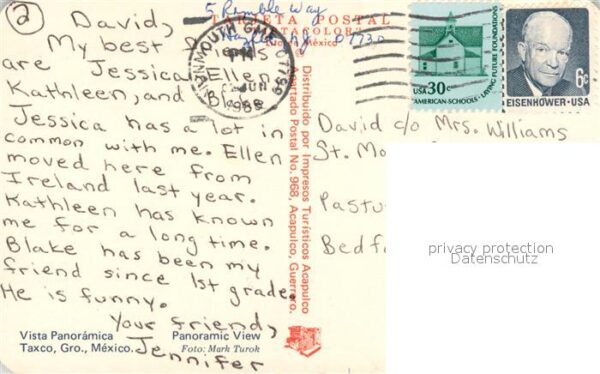 2
David,
My best friends
are Jessica, Ellen,
Kathleen, and Blake.
Jessica has a lot in
common with me. Ellen
moved here from
Ireland last year.
Kathleen has known
me for a long time.
Blake has been my
friend since 1st grade.
He is funny.
Your friend,
Jennifer
Vista Panorámica
Taxco, Gro., México.
Panoramic View
Foto: Mark Turok
TARJETA POSTAL
México
07730
JUN
1988
Distribuido por Impresos Turísticos Acapulco
Apartado Postal No. 968, Acapulco, Guerrero.
USA 30c
AMERICAN-SCHOOLS · LAYING FUTURE FOUNDATIONS
6c
EISENHOWER · USA
David c/o Mrs. Williams
St. Mo
Pastu
Bedf
privacy protection
Datenschutz